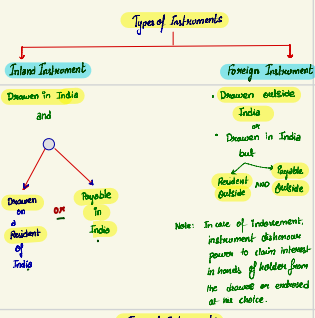 Types of Instruments
Inland Instrument
Foreign Instrument
Drawen in India
and
Drawen on a Resident of India
OR
Payable in India.
• Drawen outside India
or
• Drawen in India
but
Resident outside
AND
Payable outside
Note: In case of indorsement,
instrument dishonour
power to claim interest
in hands of holder from
the drawee or endorsed
at his choice.